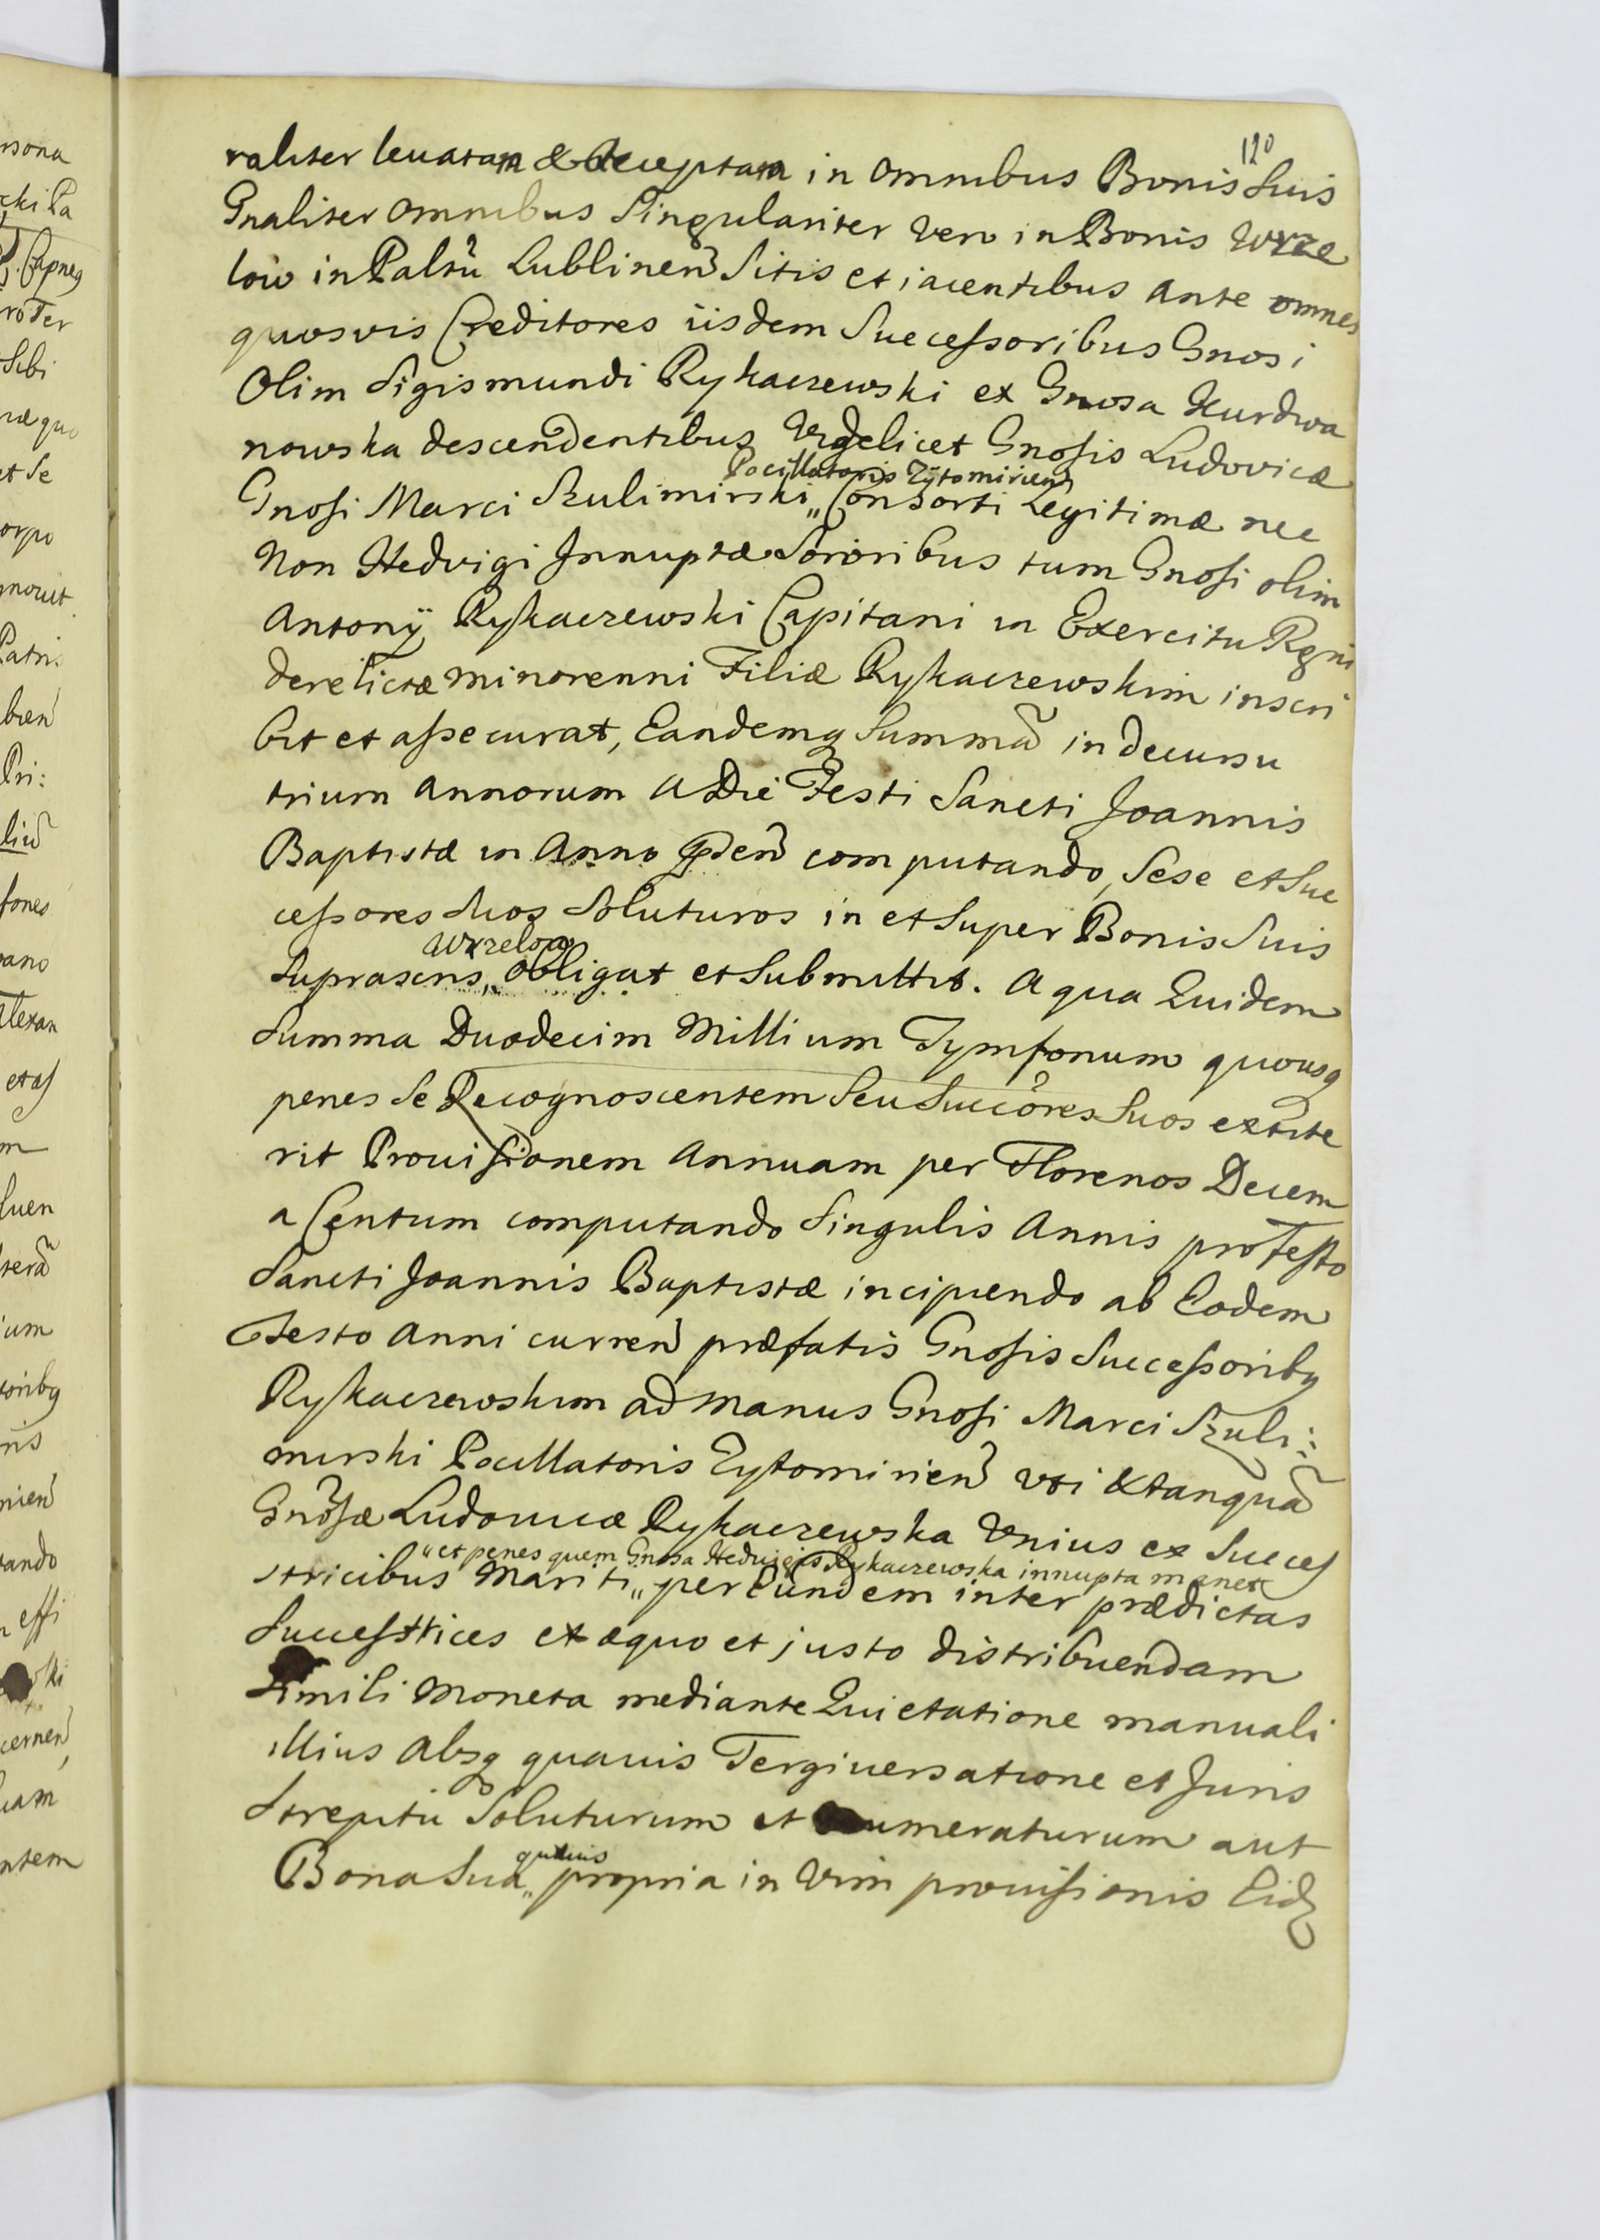 120
raliter leuatam & acceptam in omnibus Bonis Suis
Gnaliter omnibus Singulariter vero in Bonis Wrze
low in Paltũ Lublinen̄ Sitis et iacentibus ante omnes
quosvis Creditores iisdem Successoribus Gnosi
Olim Sigismundi Rykaczewski ex Gnosa Kurdwa
nowska descendentibus Videlicet Gnosis Ludovicæ
Pocillatoris Zytomirien̄
Gnosi Marci Szulimirski „ Consorti Legitimæ nec
Non Hedvigi Innuptæ Sororibus tum Gnosi olim
Antonÿ Rykaczewski Capitani in Exercitu Regni
derelictæ minorenni Filiæ Rykaczewskim inscri
bit et assecurat, Eandemq Summã in decursu
trium annorum a Die Festi Sancti Joannis
Baptistæ in Anno pn̄ten̄ computando, Sese et Suc
cessores Suos Soluturos in et Super Bonis Suis
Wrzelow
Suprascris „ obligat et Submittit. A qua Quidem
Summa Duodecim Millium Tymfonum quousq
penes Se Recognoscentem Seu Succ̃ores Suos extite
rit Prouisionem Annuam per Florenos Decem
a Centum computando Singulis Annis pro Festo
Sancti Joannis Baptistæ incipiendo ab Eodem
Festo Anni curren̄ præfatis Gnosis Successoribq
Rykaczewskim ad manus Gnosi Marci Szuli:
mirski Pocillatoris Zytomirien̄ vti & tanquã
Gnõsæ Ludovicæ Rykaczewska Vnius ex Succes
„ et penes quem Gnosa Hedvigis Rykaczewska innupta manet
stricibus Mariti „ per Eundem inter prædictas
Successtrices ex æquo et justo distribuendam
Simili Moneta mediante Quietatione manuali
illius Absq quauis Tergiuersatione et Juris
Strepitu Soluturum et numeraturum aut
quæuis
Bona Sua „ propria in Vim prouisionis Eidē